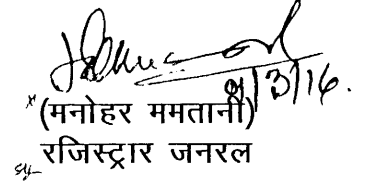 9/3/16.
(मनोहर ममतानी)
रजिस्ट्रार जनरल